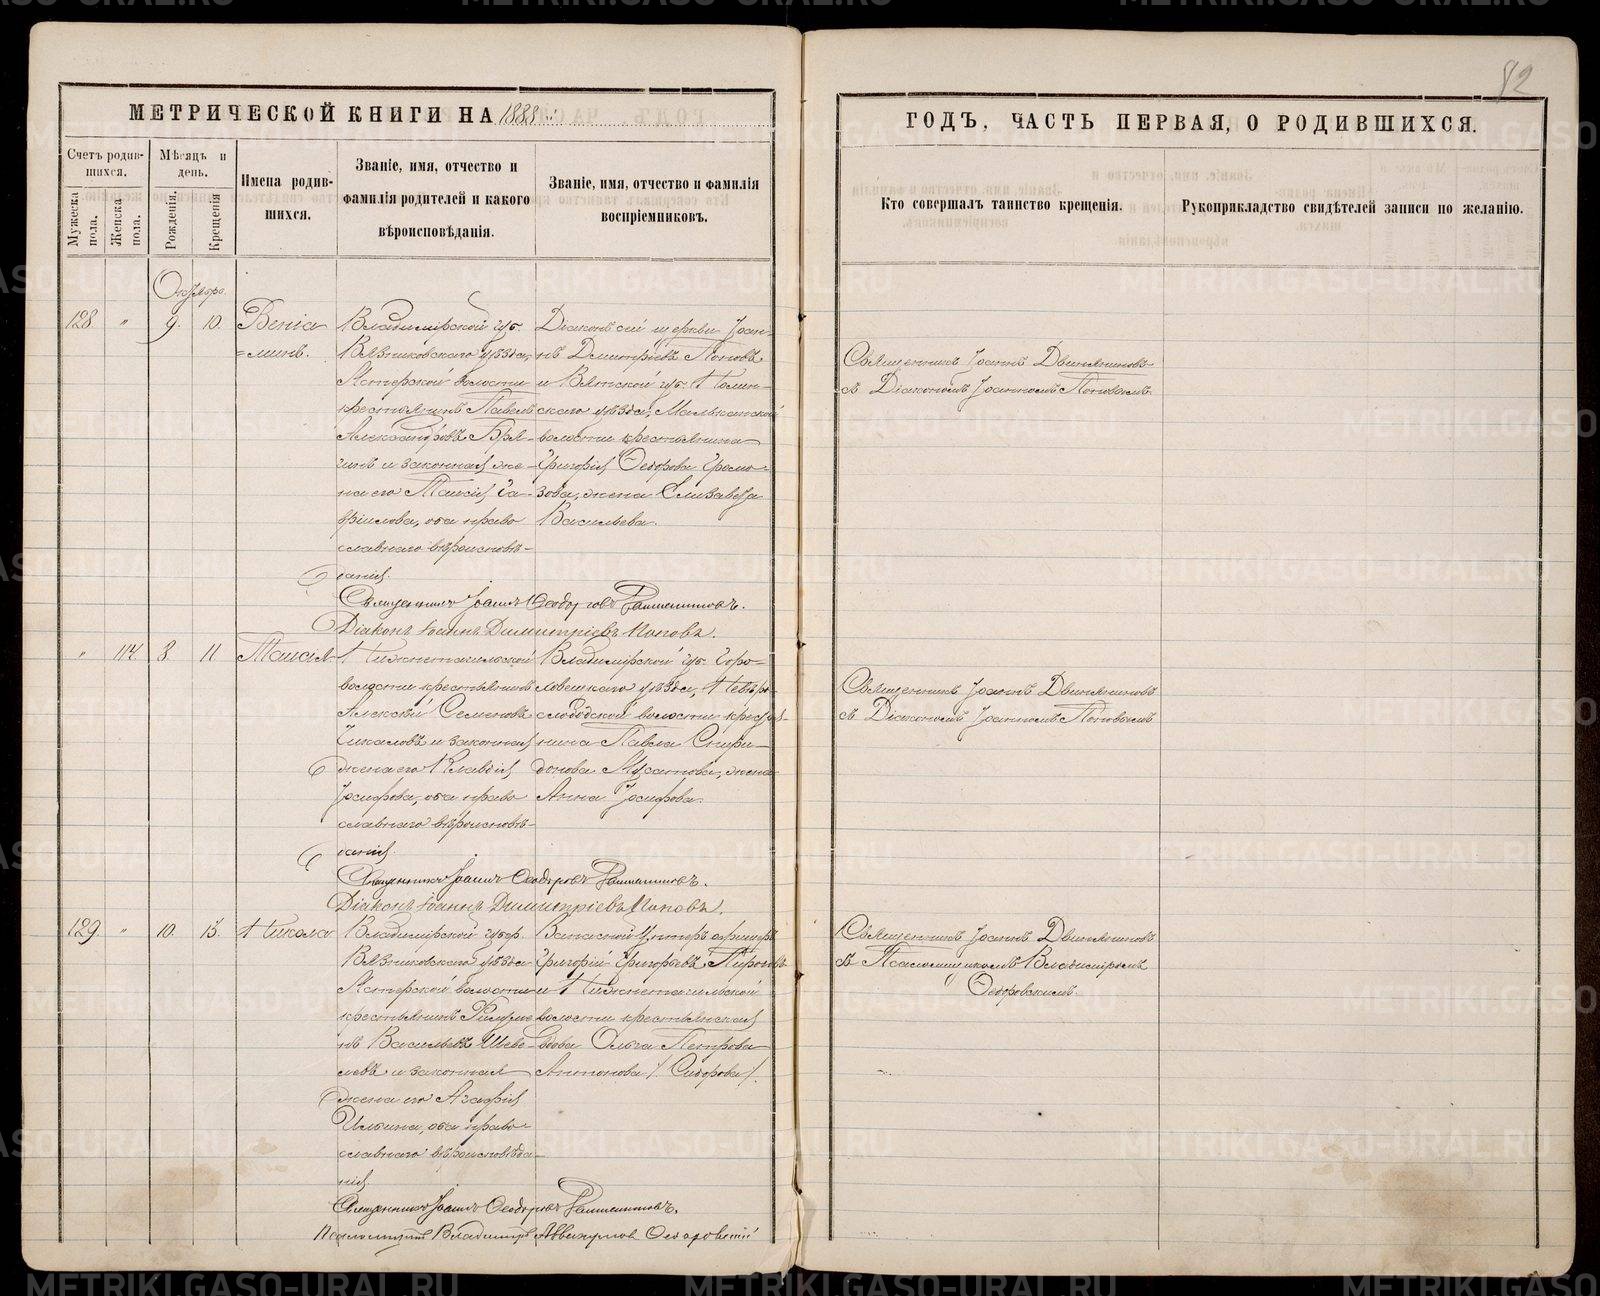 82
МЕТРИЧЕСКОЙ КНИГИ НА 1888
ГОДЪ, ЧАСТЬ ПЕРВАЯ, О РОДИВШИХСЯ.
Счетъ родив-
шихся.
Мужеска
пола.
Женска
пола.
Мѣсяцъ и
день.
Рожденія.
Крещенія
Имена родив-
шихся.
Званіе, имя, отчество и
фамилія родителей и какого
вѣроисповѣданія.
Званіе, имя, отчество и фамилія
воспріемниковъ.
Кто совершалъ таинство крещенія.
Рукоприкладство свидѣтелей записи по желанію.
Октября.
128. " 9. 10. Веніа-
=минъ.
Владимірской губ.
Вязниковскаго уѣзда,
Мстерской волости
крестьянинъ Павелъ
Александровъ
и законная же-
на его Таисія Га-
вріилова, оба право
славнаго вѣроисповѣ-
данія.
Діаконъ сей церкви Іоан-
нъ Димитріевъ Поповъ
и Вятской губ.
скаго уѣзда,
волости крестьянина
Григорія Ѳедорова Громо-
зова, жена Елизавета
Васильева.
Священникъ Іоаннъ Двиняниновъ
съ Діакономъ Іоанномъ Поповымъ.
Священникъ Іоаннъ
Діаконъ Іоаннъ Димитріевъ Поповъ.
" 114 8 11 Таисія
Нижнетагильской
волости крестьянинъ
Алексѣй Семеновъ
и законная
жена его Клавдія
Іосифова, оба право
славнаго вѣроисповѣ-
данія.
Владимірской губ. Горо-
ховецкаго уѣзда,
слободской волости кресть-
нина Павла Спири-
донова Мусатова, жена
Анна Іосифова.
Священникъ Іоаннъ Двиняниновъ
съ Діакономъ Іоанномъ Поповымъ
Священникъ Іоаннъ
Діаконъ Іоаннъ Димитріевъ Поповъ.
129 " 10. 15. Никола
Владимірской губер.
Вязниковскаго уѣзда
Мстерской волости
крестьянинъ
Васильевъ Шеве-
левъ и законная
жена его Агафія
Ильина, оба право-
славнаго вѣроисповѣда-
нія
Запасной Унтеръ офицеръ
Григорій Григорьевъ Пироговъ
и Нижнетагильской
волости крестьянская
вдова Ольга Петрова
Антонова / Сидорова /.
Священникъ Іоаннъ Двиняниновъ
съ Псаломщикомъ Владиміромъ
Ѳедоровскимъ.
Священникъ Іоаннъ
Псаломщикъ Владиміръ Ѳедоровскій
METRIKI.GASO-URAL.RU